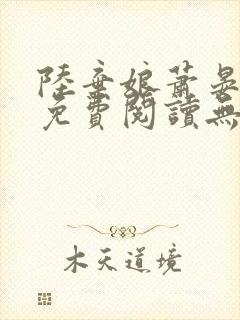 陸棄娘蕭晏
免費閱讀無
木天道境